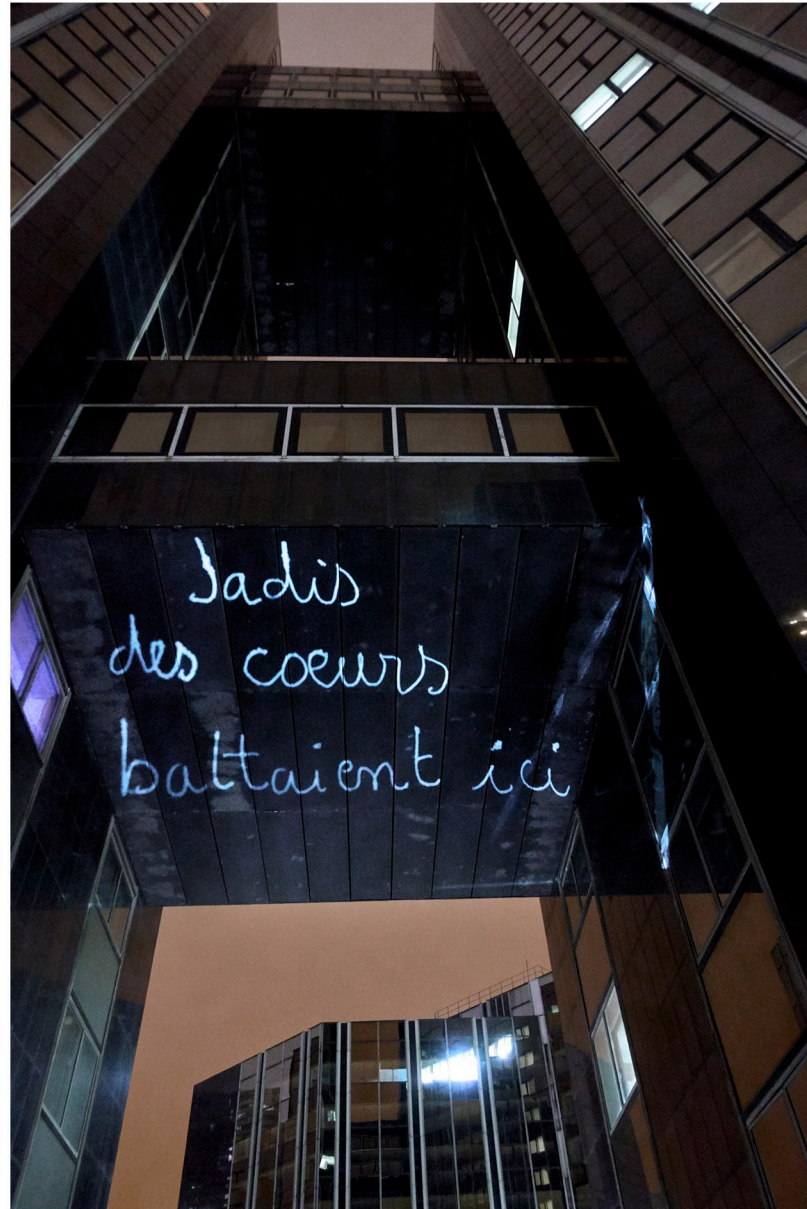 Jadis
des cœurs
battaient ici